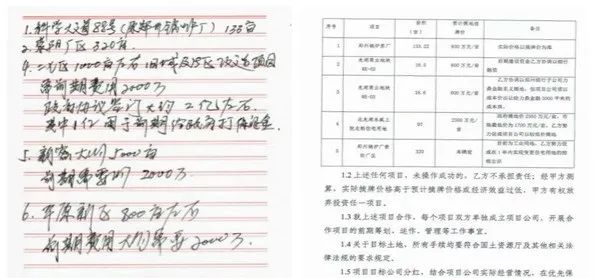 1. 科学大道88号(原郑州锅炉厂) 133亩
2. 荥阳厂区320亩.
4. 二七区1000亩左右旧城及厂区改造项目
需前期费用2000万
政府协议签订大约2亿左右.
其中1亿用于前期给政府打保证金.
5. 新密大约5000亩
前期需要约2000万.
6. 平原新区800亩左右
前期费用大约需要2000万
序号 项目 面积(亩) 预计摘地价格 备注
1 郑州锅炉老厂 133.22 600万元/亩 实际价格以摘牌价为准
2 龙湖商业地块 16.5 800万元/亩
3 龙湖商业地块 16.6 800万元/亩
4 97 2300万元/亩
5 郑州锅炉厂荥阳厂区 320 未确定
1.2 上述任何项目,未操作成功的,乙方不承担责任;经甲方测
算,实际摘牌价格高于预计摘牌价格或经济效益过低,甲方有权放
弃投资任一项目。
1.3 就上述项目合作,每个项目双方单独成立项目公司,开展合
作项目的前期筹划、运作、管理等工作事宜。
1.4 关于目标土地,所有手续均要符合国土资源厅及其他相关法
律法规的要求规定。
1.5 项目目标公司分红,结合项目公司实际经营情况,在优先保